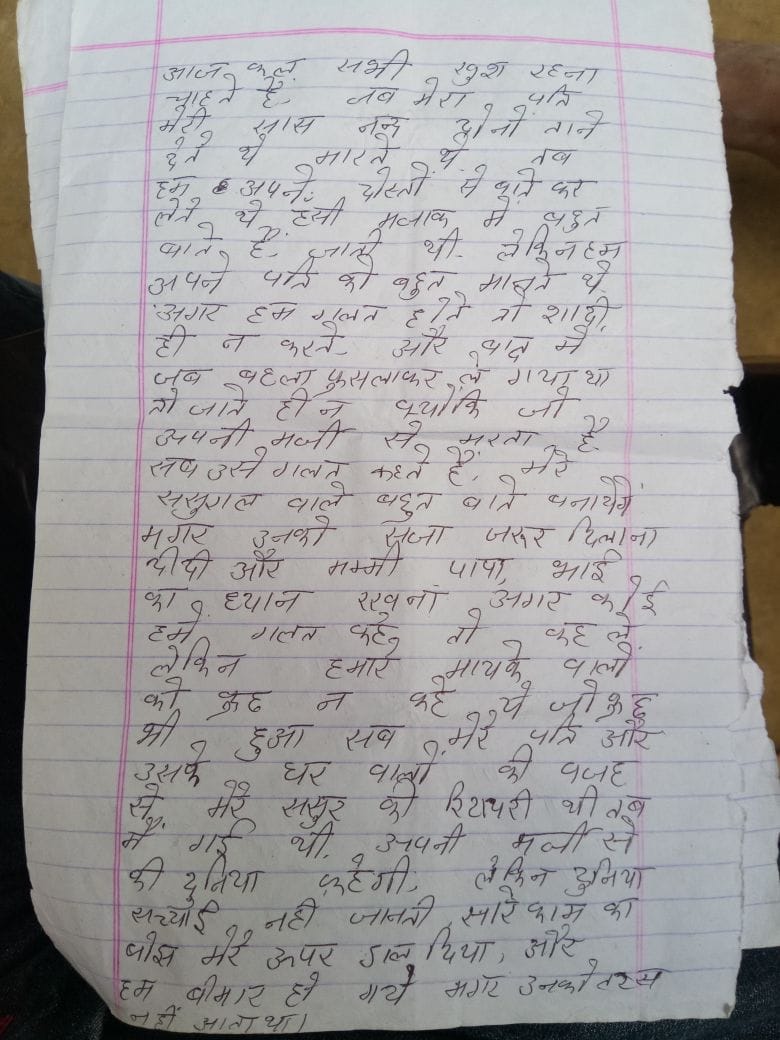 आज कल सभी खुश रहना
चाहते है. जब मेरा पति
मेरी सास नन्द दोनो ताने
देते थे मारते थे. तब
हम अपने दोस्तों से बाते कर
लेते थे हंसी मजाक में बहुत
बाते है. जाती थी. लेकिन हम
अपने पति को बहुत मानते थे.
अगर हम गलत होते तो शादी
ही न करते. और बाद में
जब बहला फुसलाकर ले गया था
तो जाते ही न क्योंकि जो
अपनी मर्जी से मरता है.
सब उसे गलत कहते है. मेरे
ससुराल वाले बहुत बाते बनायेगें
मगर उनको सजा जरूर दिलाना
दीदी और मम्मी पापा, भाई
का ध्यान रखना अगर कोई
हमे गलत कहे, तो कह ले.
लेकिन हमारे मायके वालो
को कुछ न कहे ये जो कुछ
भी हुआ सब मेरे पति और
उसके घर वालों की वजह
से मेरे ससुर की रिटायरी थी तब
मैं गई थी. अपनी मर्जी से
की दुनिया कहेगी. लेकिन दुनिया
सच्चाई नही जानती सारे काम का
बोझ मेरे ऊपर डाल दिया, और
हम बीमार हो गये मगर उनको तरस
नहीं आता था।